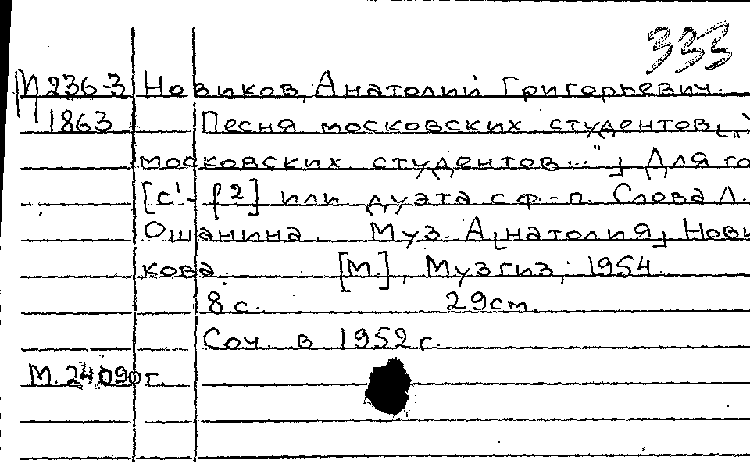 333
М 236-3 Новиков, Анатолий Григорьевич.
1863 Песня московских студентов [„У
московских студентов..."] Для го
[c¹-f2] или дуэта с ф.-п. Слова Л.
Ошанина. Муз. А[натолия] Нови
кова. [М.], Музгиз, 1954.
8 с. 29 см.
Соч. в 1952 г.
М. 24090г.